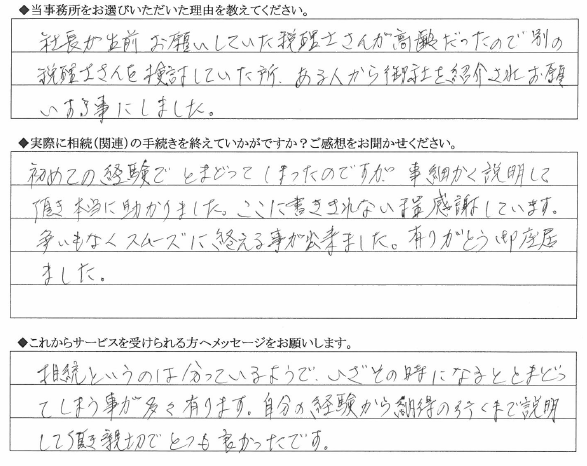 ◆当事務所をお選びいただいた理由を教えてください。
社長が生前お願いしていた税理士さんが高齢だったので別の
税理士さんを検討していた所、ある人から御社を紹介されお願
いする事にしました。
◆実際に相続(関連)の手続きを終えていかがですか？ご感想をお聞かせください。
初めての経験でとまどってしまったのですが、事細かく説明して
頂き本当に助かりました。ここに書ききれない程感謝しています。
争いもなくスムーズに終える事が出来ました。有りがとう御座居
ました。
◆これからサービスを受けられる方へメッセージをお願いします。
相続というのは分っているようで、いざその時になるととまどっ
てしまう事が多々有ります。自分の経験から納得の行くまで説明
して頂き親切でとても良かったです。